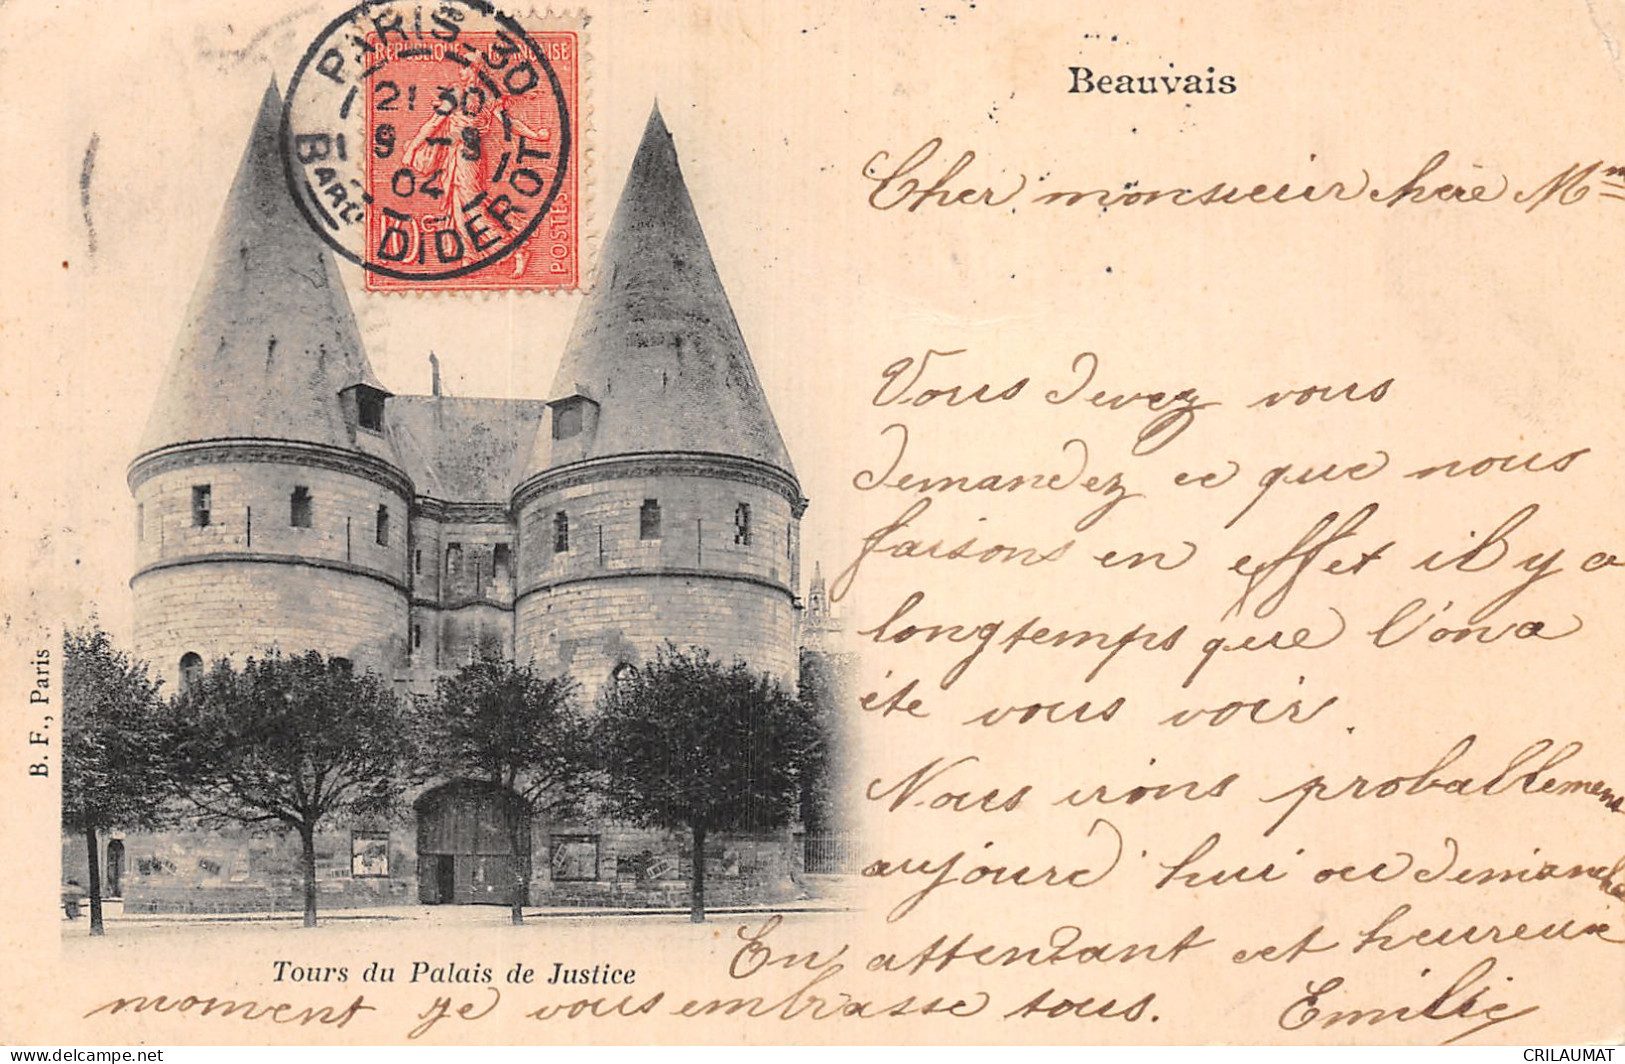 PARIS-30
21 30
9 - 9
04
DIDEROT
REPUBLIQUE FRANÇAISE
10 c
POSTES
Beauvais
Cher monsieur chère Mme
Vous devez vous
demandez ce que nous
faisons en effet il y a
longtemps que l'on a
été vous voir.
Nous irons proballement
aujourd'hui ou demianche
En attendant cet heureux
moment je vous embrasse tous. Emilie
Tours du Palais de Justice
B. F., Paris
delcampe.net
CRILAUMAT